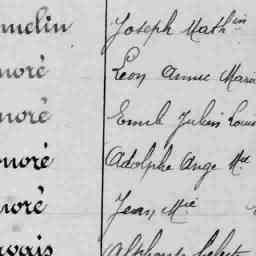 melin Joseph Math.in
noré Léon Aimé Marie
noré Emile Julien Louis
onoré Adolphe Ange M.ie
noré Jean M.ie
vais Alphonse Celeste